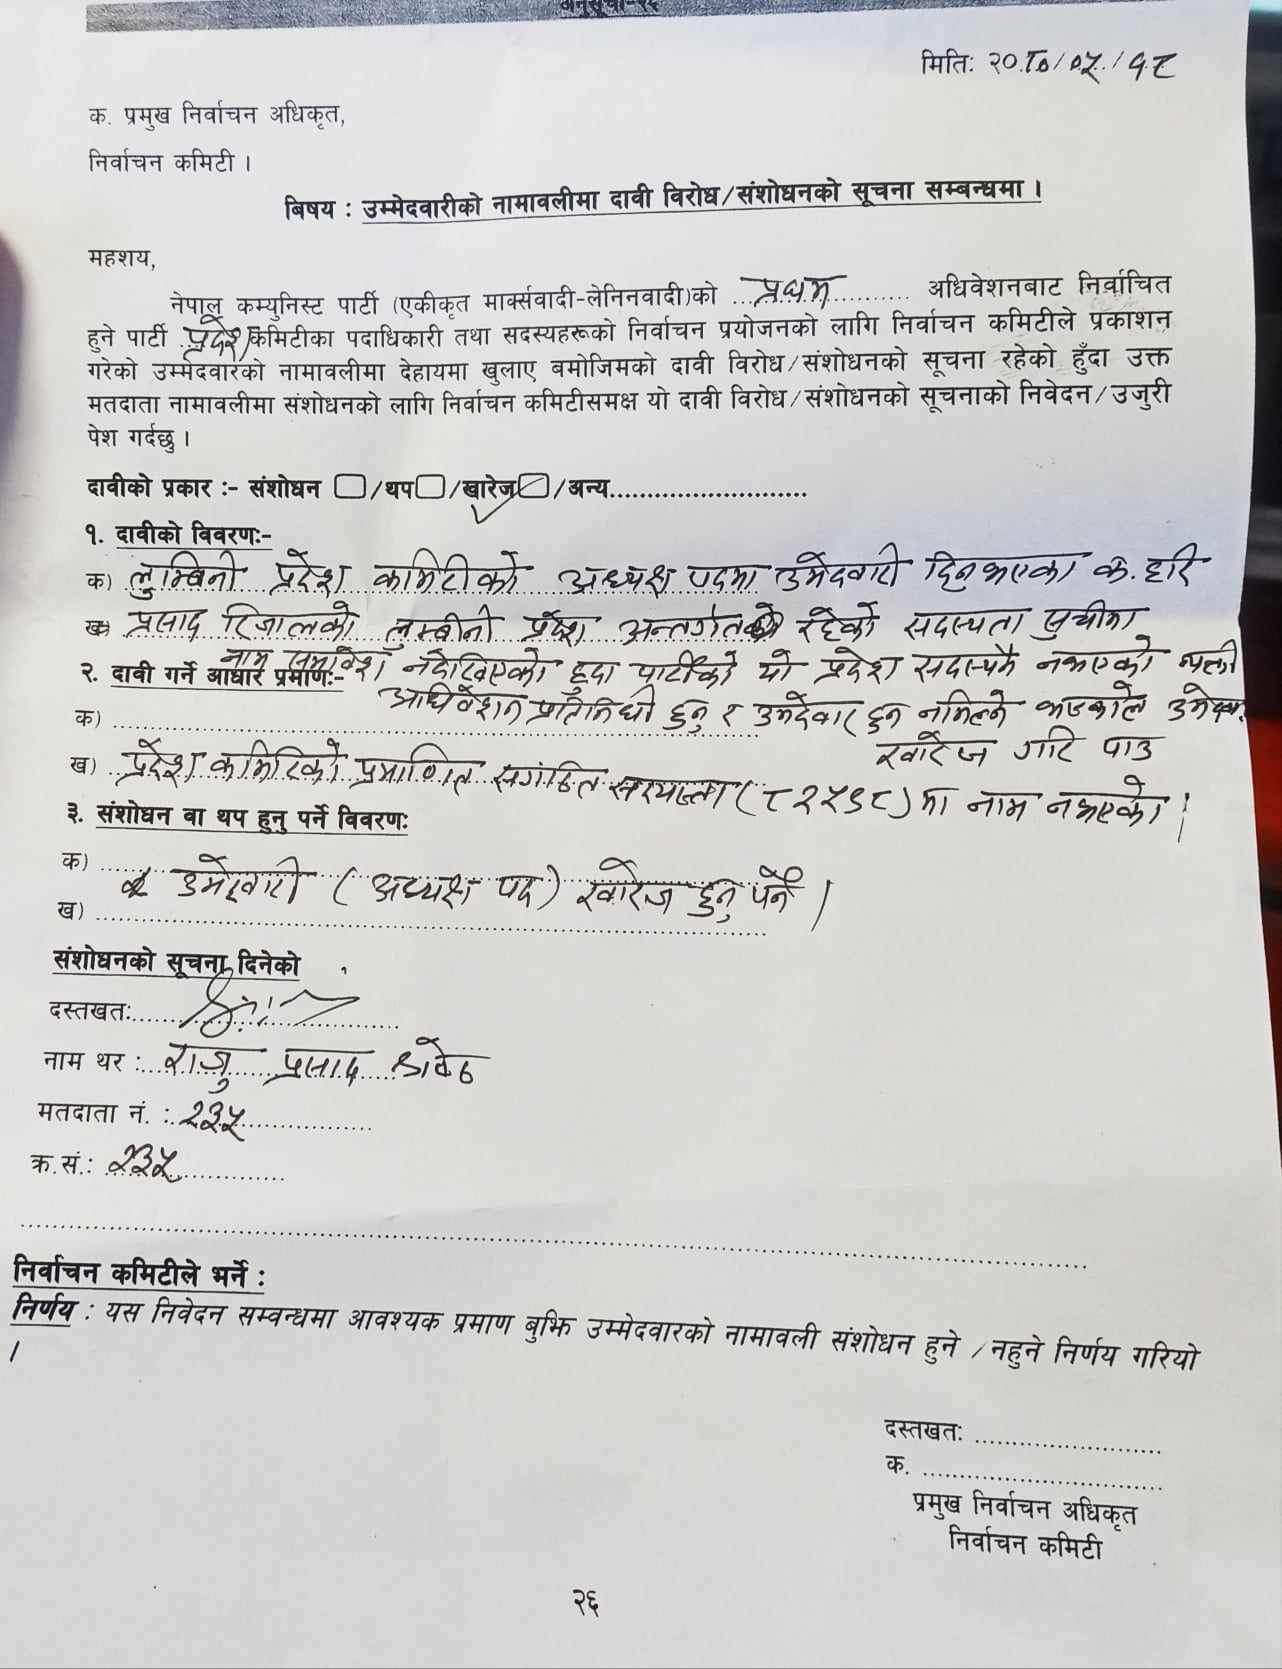 अनुसूची-२६
मिति: २०८०/०५/१८
क. प्रमुख निर्वाचन अधिकृत,
निर्वाचन कमिटी ।
बिषय : उम्मेदवारीको नामावलीमा दावी विरोध/संशोधनको सूचना सम्बन्धमा ।
महशय,
नेपाल कम्युनिस्ट पार्टी (एकीकृत मार्क्सवादी-लेनिनवादी)को ...प्रथम............ अधिवेशनबाट निर्वाचित
हुने पार्टी प्रदेश कमिटीका पदाधिकारी तथा सदस्यहरूको निर्वाचन प्रयोजनको लागि निर्वाचन कमिटीले प्रकाशन
गरेको उम्मेदवारको नामावलीमा देहायमा खुलाए बमोजिमको दावी विरोध/संशोधनको सूचना रहेको हुँदा उक्त
मतदाता नामावलीमा संशोधनको लागि निर्वाचन कमिटीसमक्ष यो दावी विरोध/संशोधनको सूचनाको निवेदन/उजुरी
पेश गर्दछु ।
दावीको प्रकार :- संशोधन /थप /खारेज /अन्य...........................
१. दावीको विवरण:-
क) लुम्बिनी प्रदेश कमिटीको अध्यक्ष पदमा उमेदवारी दिनुभएका क. हरि
ख) प्रसाद रिजालको लुम्बीनी प्रदेश अन्तर्गत रहेको सदस्यता सुचीमा
नाम समावेश नदेखिएको हुदा पार्टीको यो प्रदेश सदस्यनै नभएको व्यक्ती
२. दावी गर्ने आधार प्रमाण:-
अधिवेशन प्रतिनिधी हुनु र उमेदवार हुन नमिल्ने भएकोले
क) ..............................
खारेज गरि पाउ
ख) प्रदेश कमिटिको प्रमाणित संगठित सदस्यता (८२५९८) मा नाम नभएको ।
३. संशोधन वा थप हुनु पर्ने विवरण:
क) ..............................
उमेदवारी (अध्यक्ष पद) खारेज हुनु पर्ने ।
ख) ..............................
संशोधनको सूचना दिनेको
दस्तखत:..............................
नाम थर :...राजु प्रसाद
मतदाता नं. :.२३५..................
क्र.सं.: २३५..............
निर्वाचन कमिटीले भर्ने :
निर्णय : यस निवेदन सम्वन्धमा आवश्यक प्रमाण बुझि उम्मेदवारको नामावली संशोधन हुने /नहुने निर्णय गरियो
।
दस्तखत: ..........................
क. ..................................
प्रमुख निर्वाचन अधिकृत
निर्वाचन कमिटी
२६